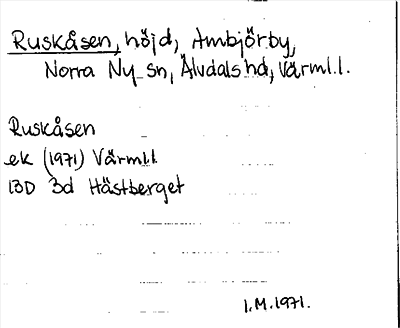 Ruskåsen, höjd, Ambjörby,
Norra Ny sn, Älvdals hd, Värml.l.
Ruskåsen
ek (1971) Värml.l.
13D 3d Hästberget
I.M.1971.